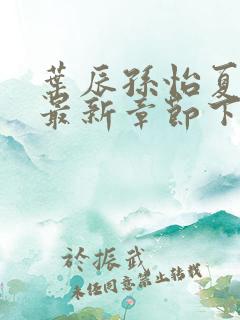 葉辰孫怡夏
最新章節下
於振武
未经同意禁止转载